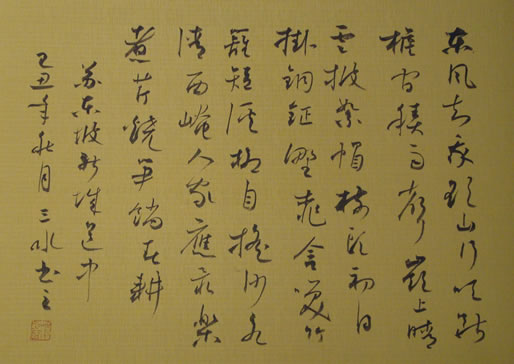 東風知我欲山行吹斷
檐間積雨聲嶺上晴
雲披絮帽樹頭初日
掛銅鉦野桃含笑竹
籬短溪柳自搖沙水
清西崦人家應最樂
煮芹燒筍餉春耕
蘇東坡新城道中
己丑年秋月三水書之